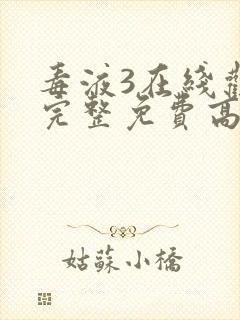 毒液3在线
完整免費高
姑蘇小橋